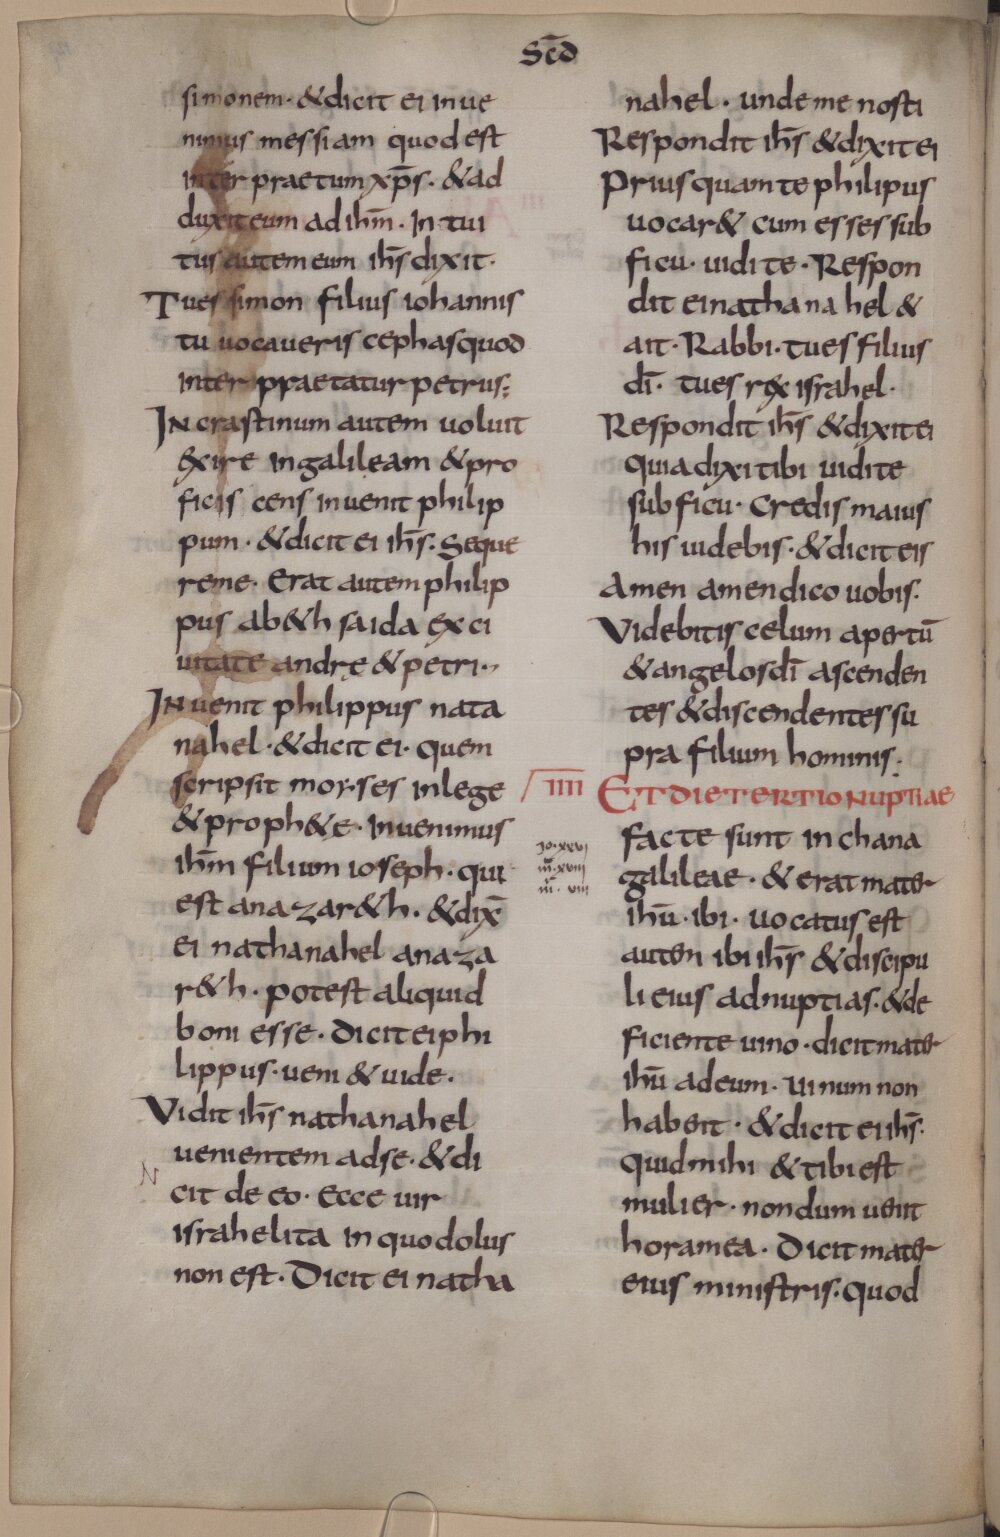 Scd̄
simonem· & dicit ei inue
nimus messiam quod est
inter praetum xp̄s· & ad
duxit eum ad ih̄m· Intui
tus autem eum ih̄s dixit·
Tu es simon filius iohannis
tu uocaueris cephas quod
inter praetatur petrus;
IN crastinum autem uoluit
exire in galileam & pro
ficiscens inuenit philip
pum· & dicit ei ih̄s· Seque
re me· Erat autem philip
pus ab &hsaida ex ci
uitate andrę & petri·
INuenit philippus nata
nahel· & dicit ei· quem
scripsit moyses in lege
& proph&e· inuenimus
ih̄m filium ioseph· qui
est a nazar&h· & dix̄
ei nathanahel a naza
r&h· potest aliquid
boni esse· dicit ei phi
lippus· ueni & uide·
Vidit ih̄s nathanahel
uenientem ad se· & di
N
cit de eo· Ecce uir
israhelita in quo dolus
non est· Dicit ei natha
nahel· unde me nosti
Respondit ih̄s & dixit ei
Prius quam te philipus
uocar& cum esses sub
ficu· uidi te· Respon
dit ei nathanahel &
ait· Rabbi· tu es filius
dī· tu es rex israhel·
Respondit ih̄s & dixit ei
quia dixi tibi uidi te
sub ficu· Credis maius
his uidebis· & dicit eis
Amen amen dico uobis·
Videbitis celum apertū
& angelos dī ascenden
tes & discendentes su
pra filium hominis·
IIII ET DIE TERTIO NUPTIAE
facte sunt in chana
galileae· & erat mater
ihū· ibi· uocatus est
autem ibi ih̄s & discipu
li eius ad nuptias· & de
ficiente uino· dicit mater
ihū ad eum· uinum non
habent· & dicit ei ih̄s·
quid mihi & tibi est
mulier· nondum uenit
hora mea· Dicit mater
eius ministris· quod